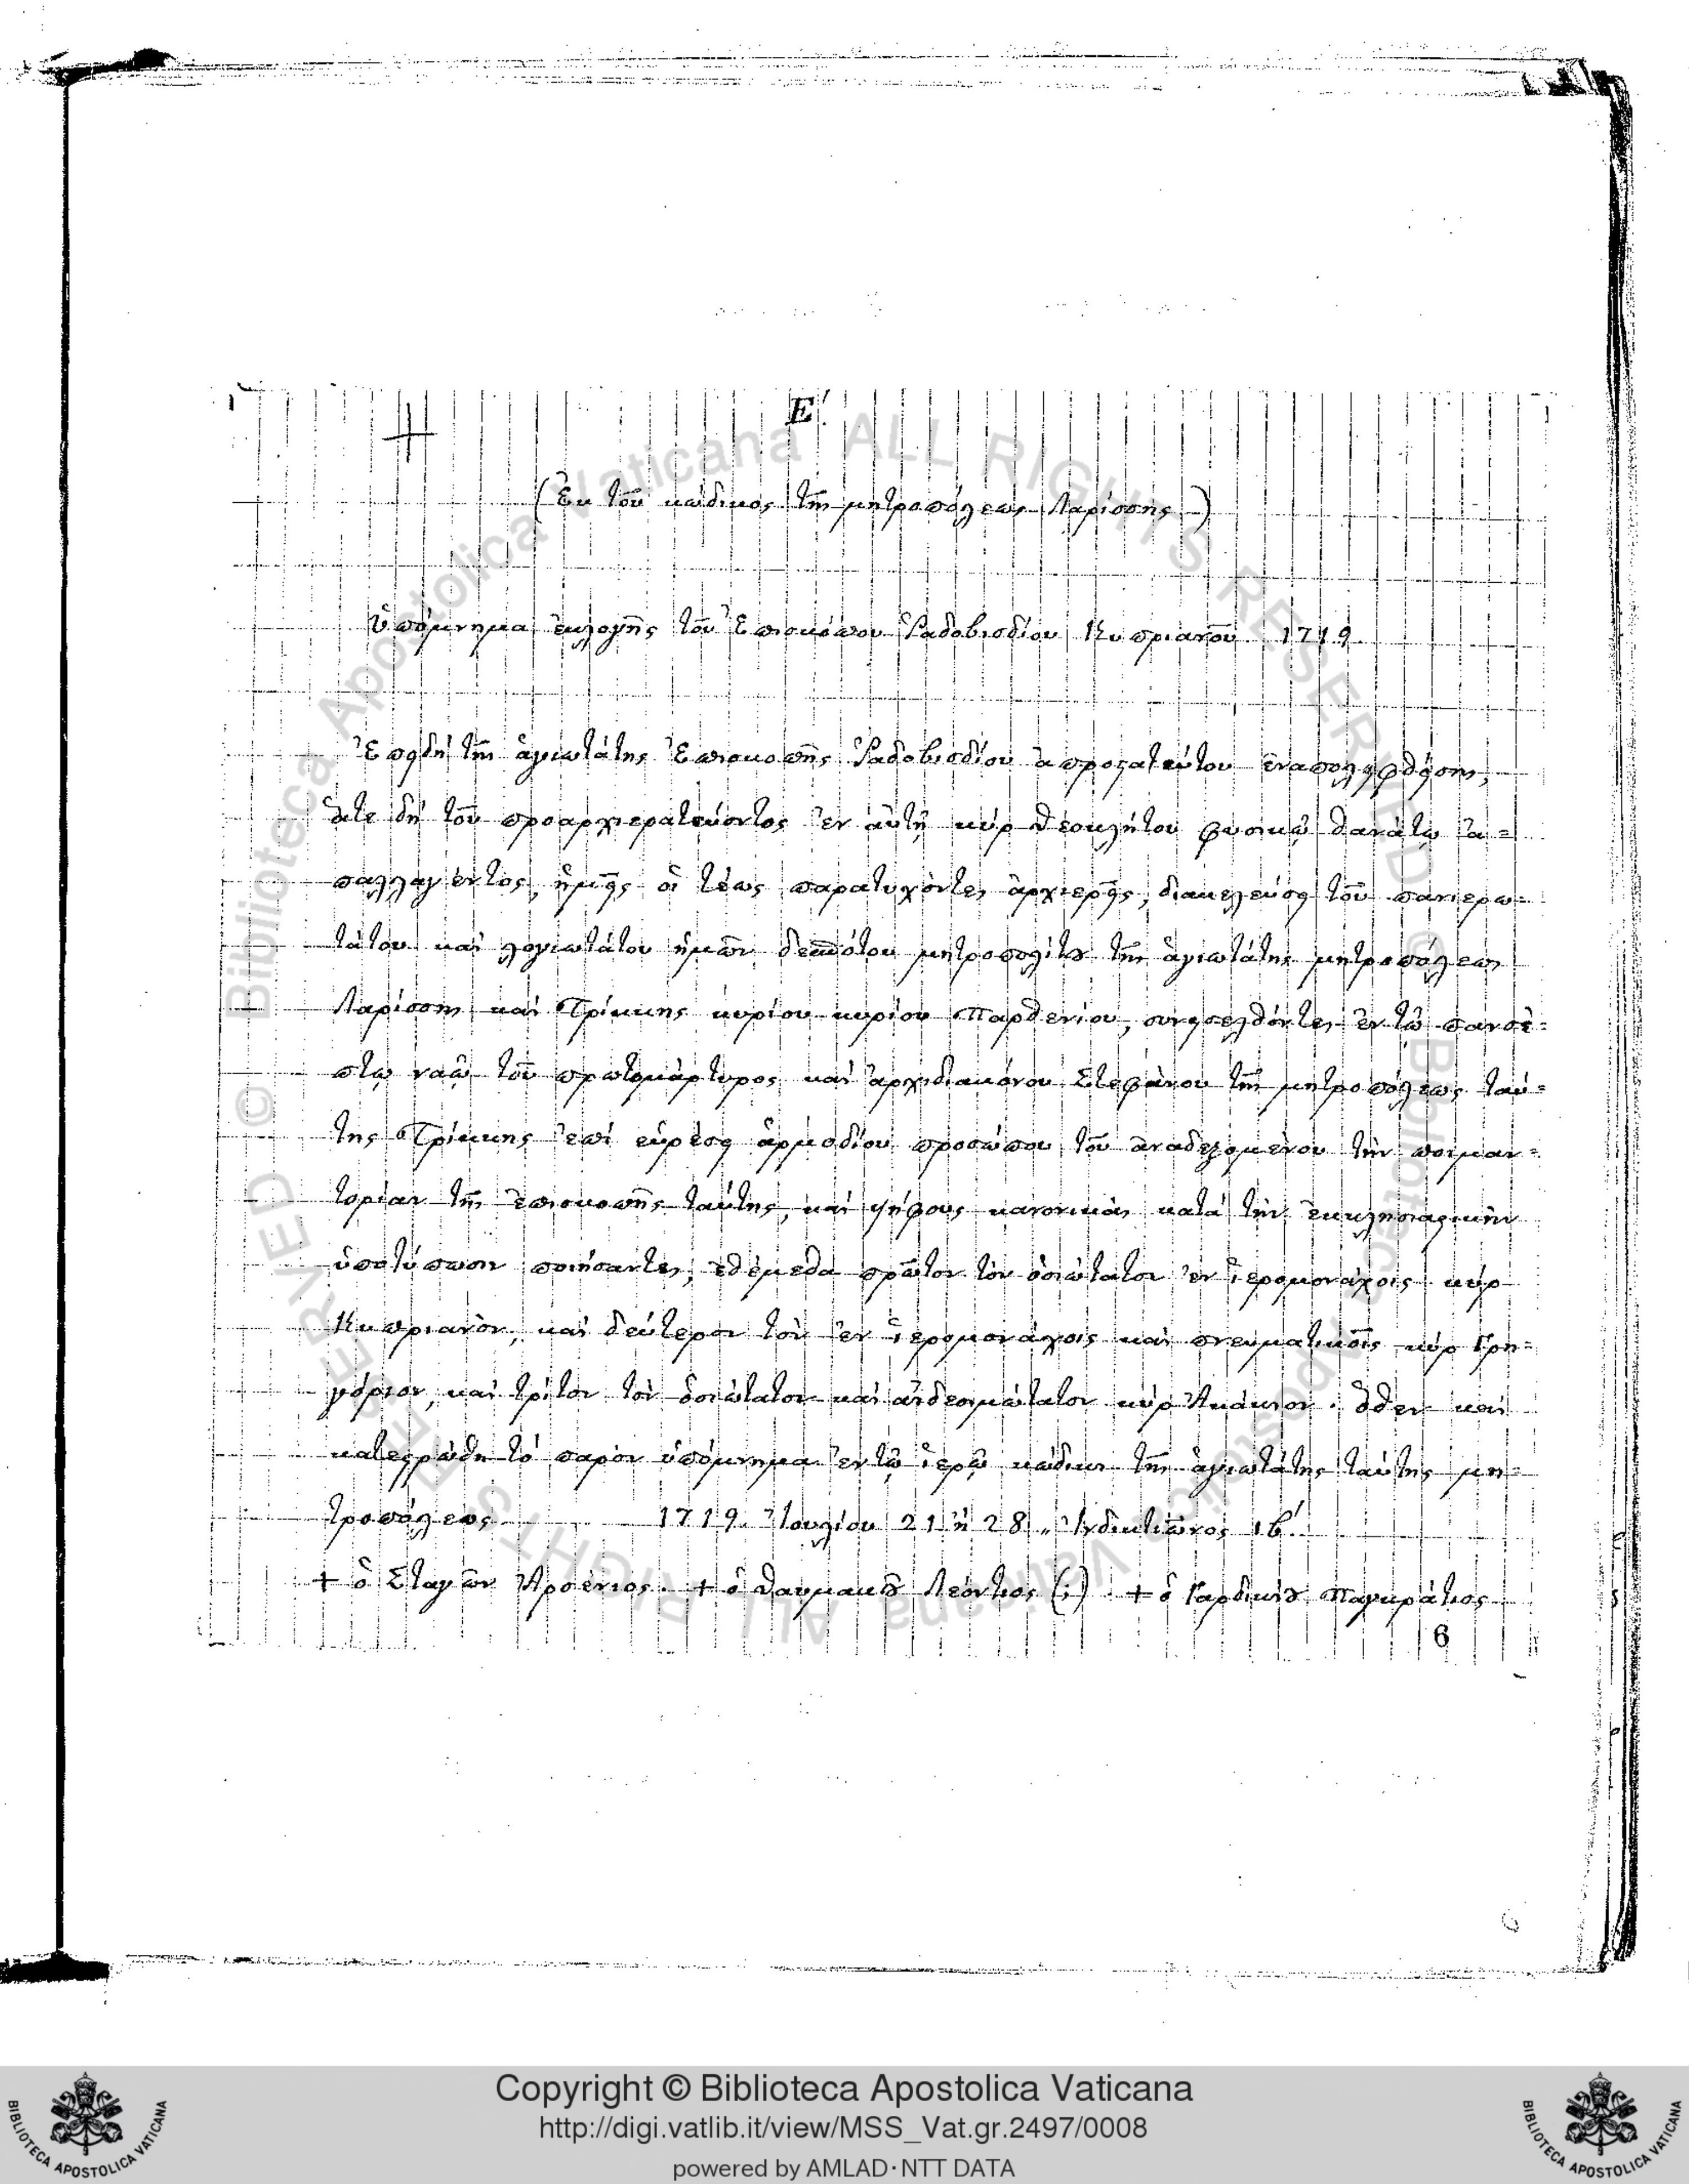 Ε΄.
(Ἐκ τοῦ κώδικος τῆς μητροπόλεως Λαρίσσης)
Ὑπόμνημα ἐκλογῆς τοῦ Ἐπισκόπου Ῥαδοβισδίου Κυπριανοῦ 1719
Ἐπειδὴ τῆς ἁγιωτάτης Ἐπισκοπῆς Ῥαδοβισδίου ἀπροστατεύτου ἐναπολειφθείσης,
ἅτε δὴ τοῦ προαρχιερατεύοντος ἐν αὐτῇ κύρ Θεοκλήτου φυσικῷ θανάτῳ ἀ=
παλλαγέντος, ἡμεῖς οἱ τέως παρατυχόντες ἀρχιερεῖς, διακελεύσει τοῦ πανιερω=
τάτου καὶ λογιωτάτου ἡμῶν δεσπότου μητροπολίτου τῆς ἁγιωτάτης μητροπόλεως
Λαρίσσης καὶ Τρίκκης κυρίου κυρίου Παρθενίου, συνεισελθόντες ἐν τῷ πανσέ=
πτῳ ναῷ τοῦ πρωτομάρτυρος καὶ ἀρχιδιακόνου Στεφάνου τῆς μητροπόλεως ταύ=
της Τρίκκης ἐπὶ εὑρέσει ἁρμοδίου προσώπου τοῦ ἀναδεξομένου τὴν ποιμαν=
τορίαν τῆς ἐπισκοπῆς ταύτης, καὶ ψήφους κανονικὰς κατὰ τὴν ἐκκλησιαστικὴν
ὑποτύπωσιν ποιήσαντες, ἐθέμεθα πρῶτον τὸν ὁσιώτατον ἐν ἱερομονάχοις κύρ
Κυπριανὸν, καὶ δεύτερον τὸν ἐν ἱερομονάχοις καὶ πνευματικοῖς κύρ Γρη=
γόριον, καὶ τρίτον τὸν ὁσιώτατον καὶ αἰδεσιμώτατον κύρ Ἀκάκιον. ὅθεν καὶ
κατεστρώθη τὸ παρὸν ὑπόμνημα ἐν τῷ ἱερῷ κώδικι τῆς ἁγιωτάτης ταύτης μη=
τροπόλεως 1719. Ἰουλίου 21 ἢ 28 „ Ἰνδικτιῶνος ιβ΄.
+ ὁ Σταγῶν Ἀρσένιος. + ὁ Θαυμακοῦ Λεόντιος (;) + ὁ Γαρδικίου Παγκράτιος
6
Copyright © Biblioteca Apostolica Vaticana
http://digi.vatlib.it/view/MSS_Vat.gr.2497/0008
powered by AMLAD·NTT DATA